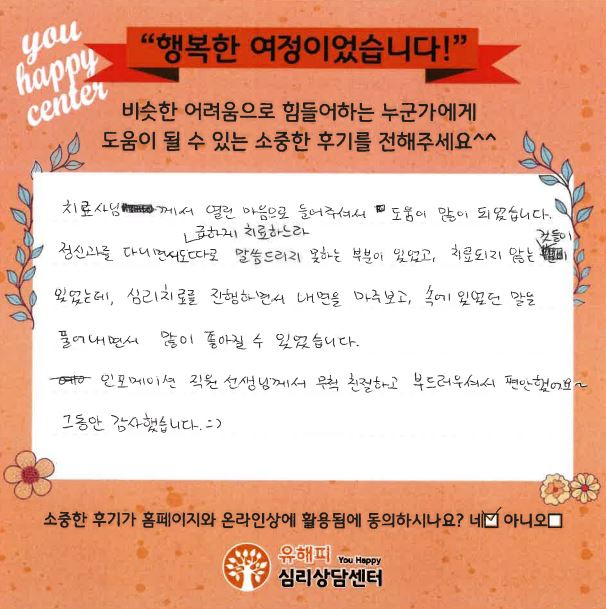 you
happy
center
“행복한 여정이었습니다!”
비슷한 어려움으로 힘들어하는 누군가에게
도움이 될 수 있는 소중한 후기를 전해주세요^^
치료사님께서 열린 마음으로 들어주셔서 도움이 많이 되었습니다.
급하게 치료하느라
정신과를 다니면서도 따로 말씀드리지 못하는 부분이 있었고, 치료되지 않는 것들이
있었는데, 심리치료를 진행하면서 내면을 마주보고, 속에 있었던 말을
풀어내면서 많이 좋아질 수 있었습니다.
인포메이션 직원 선생님께서 무척 친절하고 부드러우셔서 편안했어요~
그동안 감사했습니다. =)
소중한 후기가 홈페이지와 온라인상에 활용됨에 동의하시나요? 네 아니오
유해피 You Happy
심리상담센터